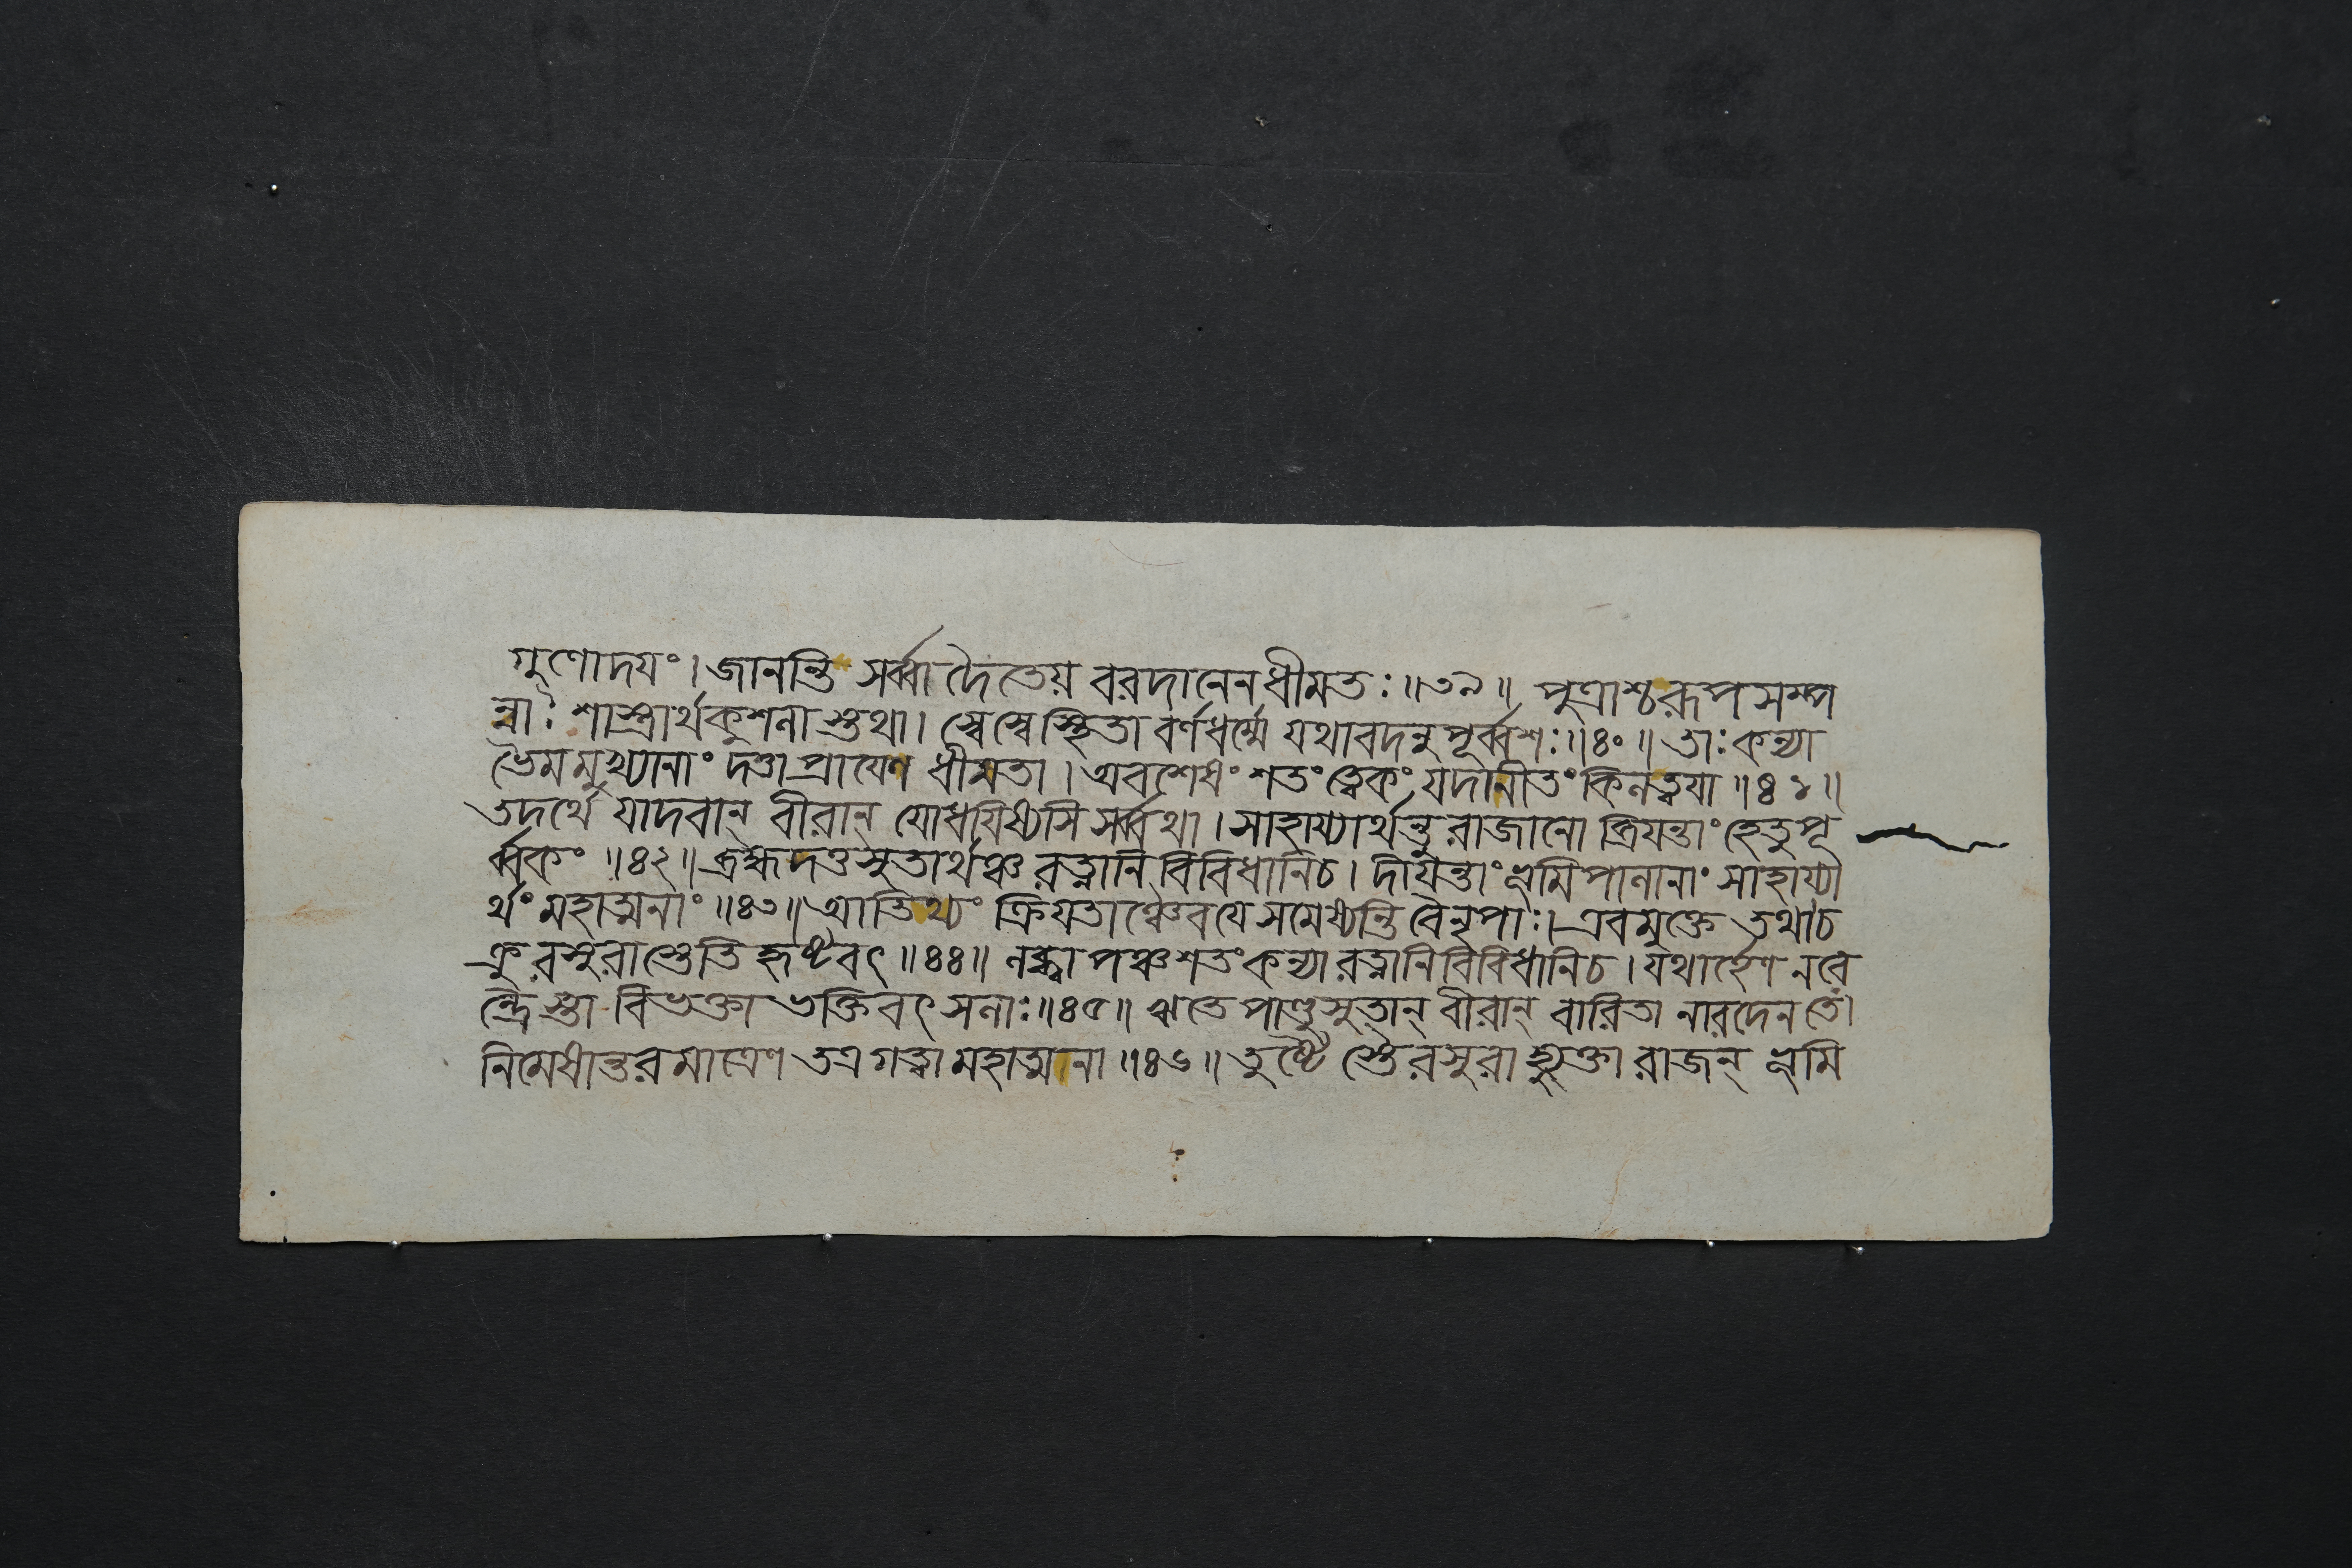 গুণোদযং। জানন্তি সর্ব্বা দৈতেয় বরদানেন ধীমতঃ॥৩৯॥ পুত্রাশ্চ রূপসম্প
ন্নাঃ শাস্ত্রার্থকুশলা স্তথা। স্বে স্বে স্থিতা বর্ণধর্ম্মে যথাবদনুপূর্ব্বশঃ॥৪০॥ তাঃ কন্যা
ভৈমমুখ্যানাং দত্তা প্রাযেণ ধীমতা। অবশেষং শতং ত্বেকং যদানীতং কিলত্বযা॥৪১॥
তদর্থে যাদবান্ বীরান্ যোধযিষ্যসি সর্ব্বথা। সাহায্যার্থন্তু রাজানো ব্রিযন্তাং হেতুপূ
র্ব্বকং॥৪২॥ ব্রহ্মদত্তসুতার্থঞ্চ রত্নানি বিবিধানি চ। দীযন্তাং ভূমিপালানাং সাহায্যা
র্থং মহাত্মনাং॥৪৩॥ আতিথ্যং ক্রিযতাঞ্চৈব যে সমেষ্যন্তি বৈ নৃপাঃ। এবমুক্তে তথা চ
ক্রু রসুরাস্তেতি হৃষ্টবৎ॥৪৪॥ লব্ধ্বা পঞ্চশতং কন্যা রত্নানি বিবিধানি চ। যথার্হেণ নরে
ন্দ্রৈস্তা বিভক্তা ভক্তিবৎসলাঃ॥৪৫॥ ঋতে পাণ্ডুসুতান্ বীরান্ বারিতা নারদেন তে।
নিমেষান্তরমাত্রেণ তত্র গত্বা মহাত্মনা॥৪৬॥ তুষ্টৈ স্তৈরসুরা হ্যুক্তা রাজন্ ভূমি